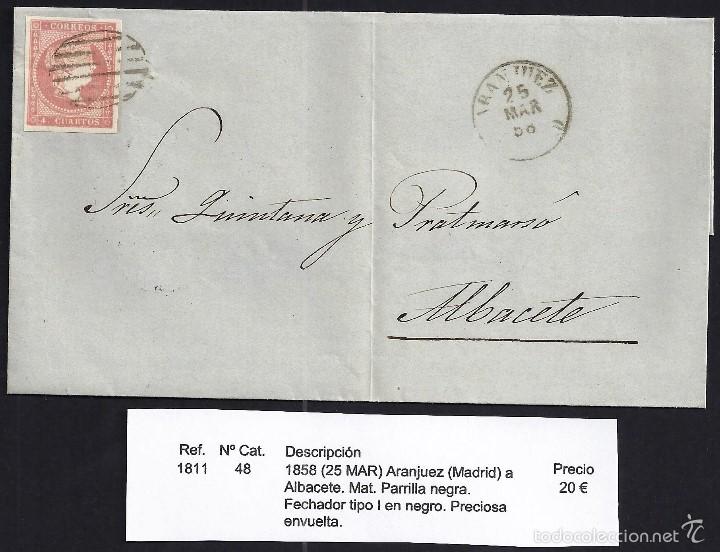 CORREOS
4. CUARTOS
ARANJUEZ
25
MAR
58
Sres. Quintana y Pratmarsó
Albacete
Ref. Nº Cat. Descripción Precio
1811 48 1858 (25 MAR) Aranjuez (Madrid) a 20 €
Albacete. Mat. Parrilla negra.
Fechador tipo I en negro. Preciosa
envuelta.
todocoleccion.net